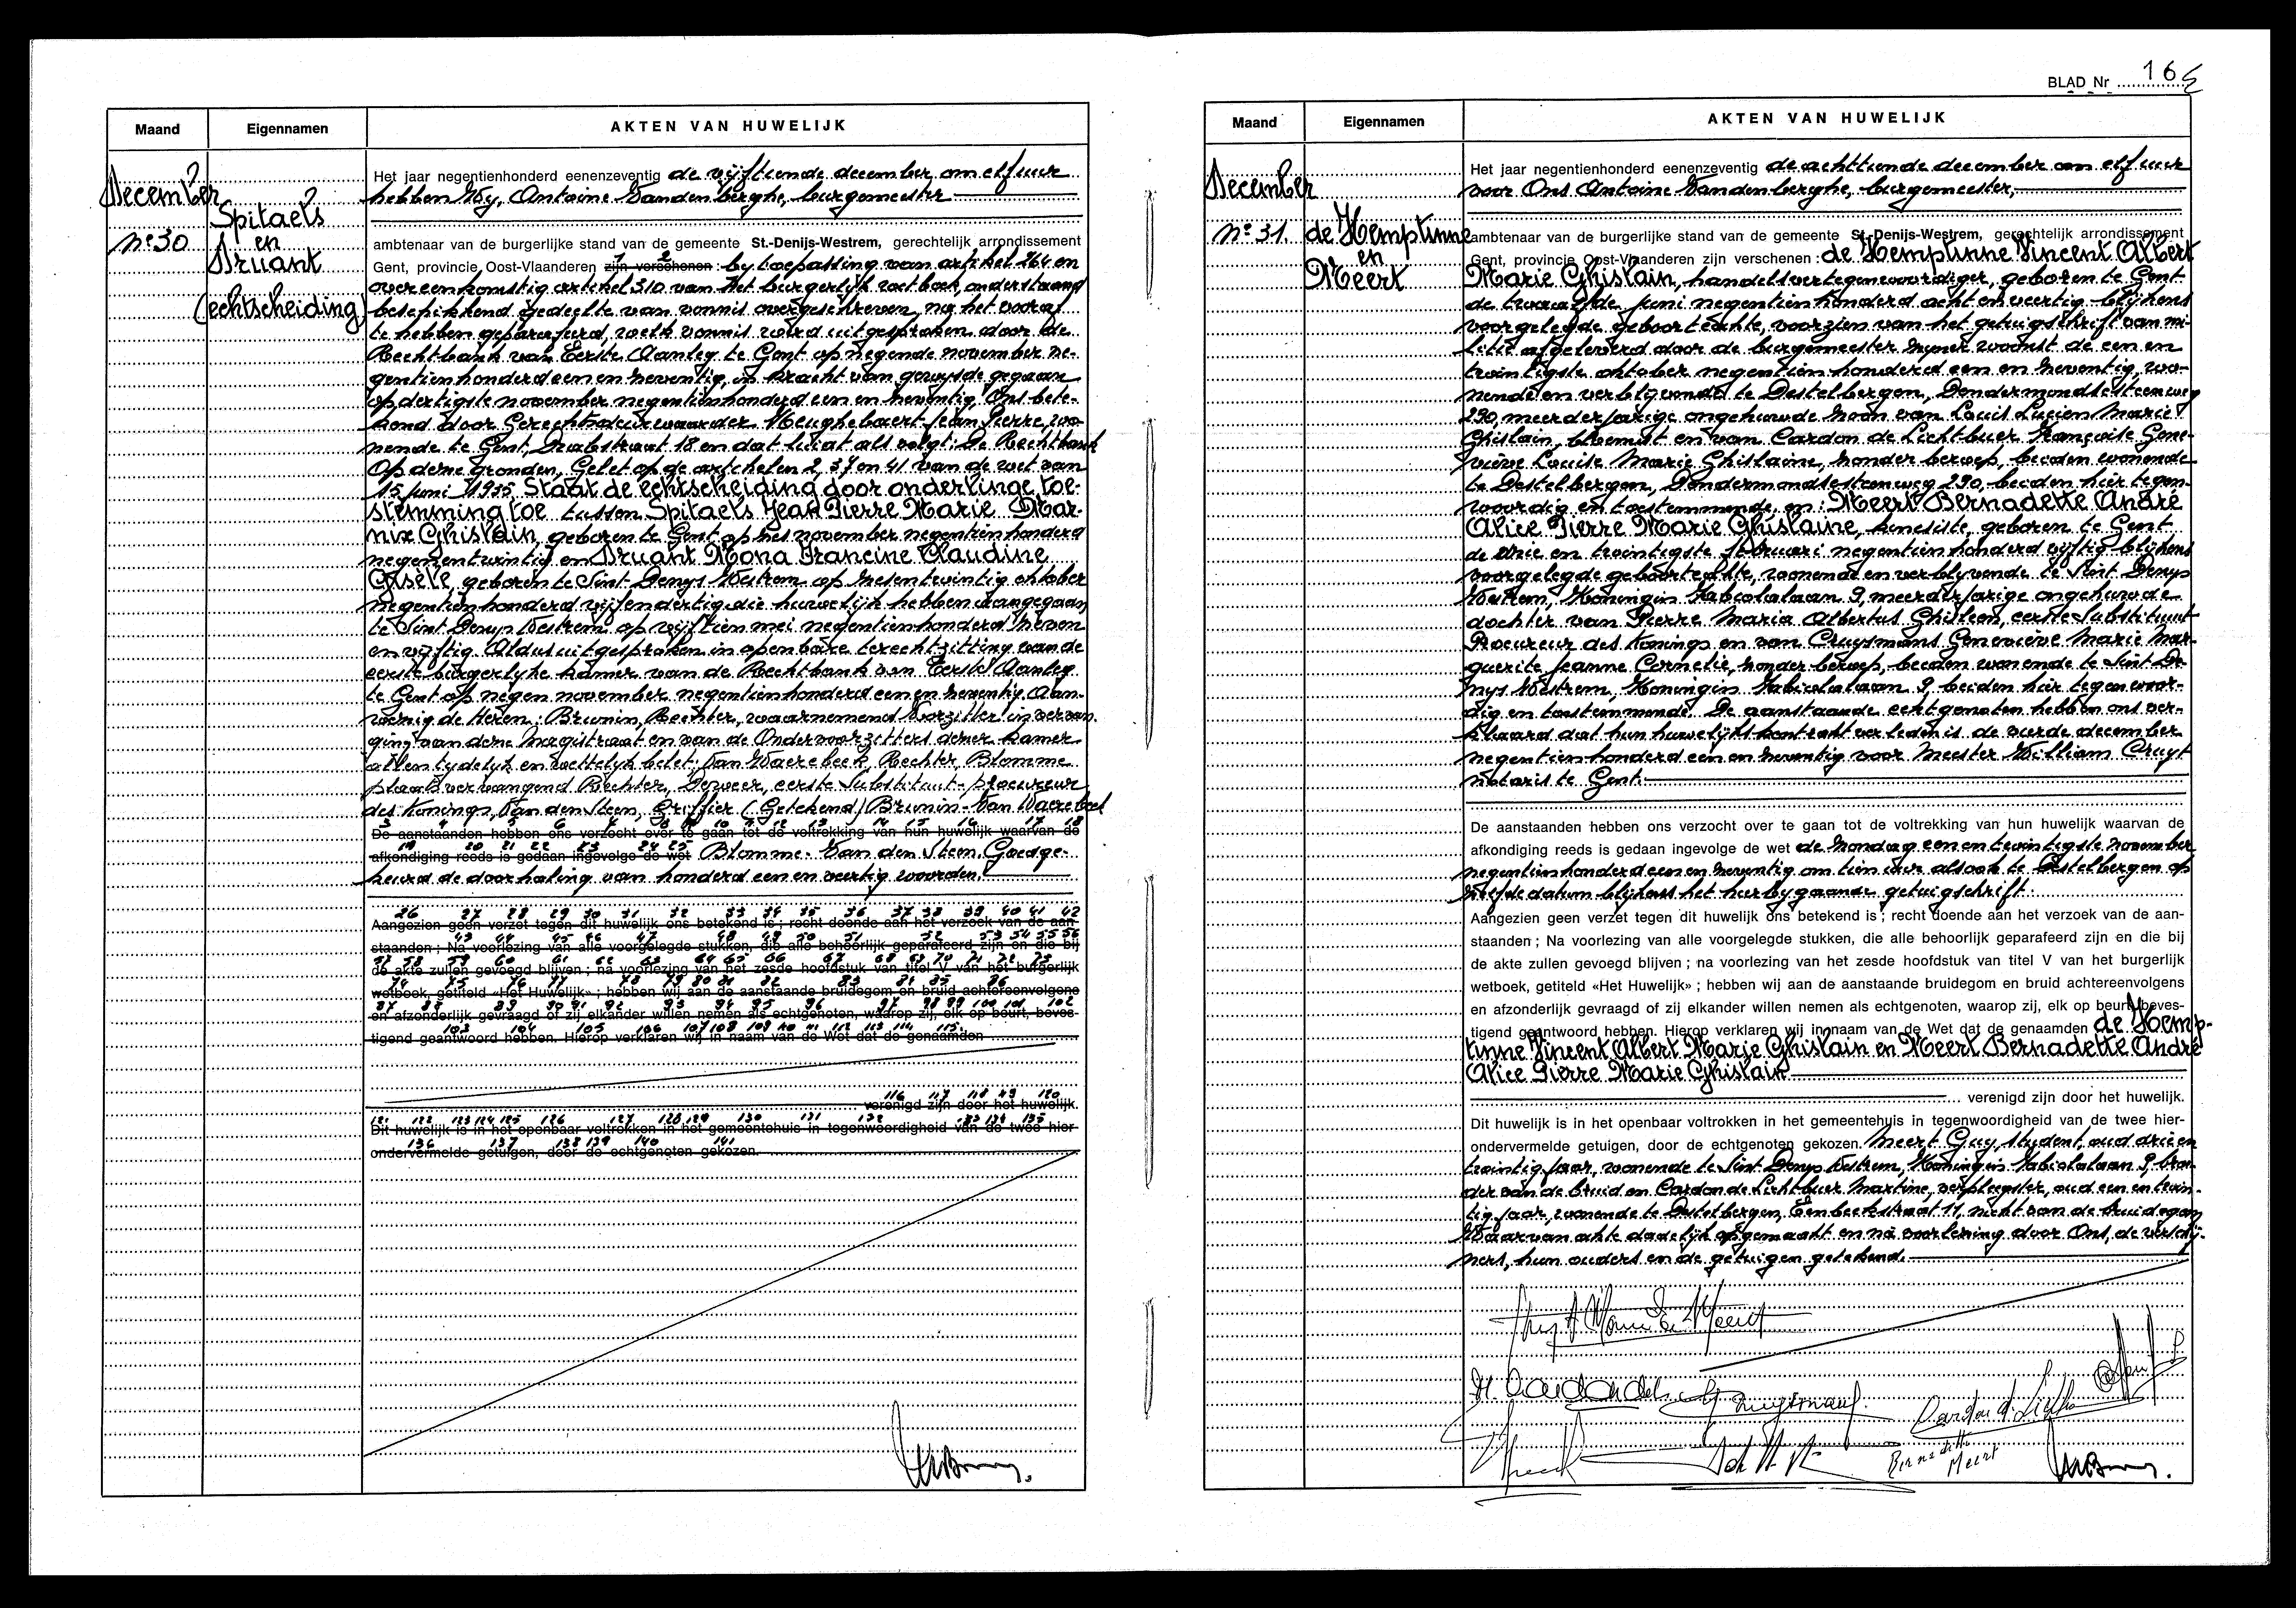 Maand Eigennamen AKTEN VAN HUWELIJK
December
Spitaels
nº 30
en
Druant
(echtscheiding)
Het jaar negentienhonderd eenenzeventig de vijftiende december om elf uur
hebben Wij, Antoine Vandenberghe, burgemeester
ambtenaar van de burgerlijke stand van de gemeente St.-Denijs-Westrem, gerechtelijk arrondissement
1 2
Gent, provincie Oost-Vlaanderen zijn verschenen : by toepassing van artikel 264 en
overeenkomstig artikel 310 van het burgerlijk wetboek, onderstaand
beschikkend gedeelte van vonnis overgeschreven, na het vooraf
te hebben geparafeerd, welk vonnis werd uitgesproken door de
Rechtbank van Eerste Aanleg te Gent op negende november ne-
gentienhonderd een en zeventig, in kracht van gewysde gegaan
op dertigste november negentienhonderd een en zeventig, Ons bete-
kend door Gerechtsdeurwaarder Meughebaert Jean Pierre, wo-
nende te Gent, 18 en dat luidt als volgt: De Rechtbank
Op dezer gronden, Gelet op de artikelen 2, 37 en 41 van de wet van
15 juni 1935, Staat de echtscheiding door onderlinge toe-
stemming toe tussen Spitaels Jean Pierre Marie Mar-
nix Ghislain, geboren te Gent op zes november negentienhonderd
negenentwintig en Druant Mona Francine Claudine
Gisèle, geboren te Sint Denys Westrem op zesentwintig oktober
negentienhonderd vijfendertig, die huwelijk hebben aangegaan
te Sint Denys Westrem op vijftien mei negentienhonderd zeven
en vijftig. Aldus uitgesproken in openbare terechtzitting van de
eerste burgerlyke kamer van de Rechtbank van Eerste Aanleg
te Gent op negen november negentienhonderd een en zeventig. Aan-
wezig de Heren: Brunin, Rechter, waarnemend Voorzitter in vervan-
ging van dezer Magistraat en van de Ondervoorzitters dezer kamer
allen tydelyk en wettelyk belet; Van Waerebeek, Rechter, Blomme
plaatsvervangend Rechter, Dewaer, eerste Substituut-procureur
des Konings, Van den Steen, Griffier (Getekend) Brunin-Van Waerebeek
3 4 5 6 7 8 9 10 11 12 13 14 15 16 17 18
De aanstaanden hebben ons verzocht over te gaan tot de voltrekking van hun huwelijk waarvan de
19 20 21 22 23 24 25
afkondiging reeds is gedaan ingevolge de wet Blomme. Van den Steen. Goedge-
keurd de doorhaling van honderd een en veertig woorden.
26 27 28 29 30 31 32 33 34 35 36 37 38 39 40 41 42
Aangezien geen verzet tegen dit huwelijk ons betekend is ; recht doende aan het verzoek van de aan-
43 44 45 46 47 48 49 50 51 52 53 54 55 56
staanden ; Na voorlezing van alle voorgelegde stukken, die alle behoorlijk geparafeerd zijn en die bij
57 58 59 60 61 62 63 64 65 66 67 68 69 70 71 72 73
de akte zullen gevoegd blijven ; na voorlezing van het zesde hoofdstuk van titel V van het burgerlijk
74 75 76 77 78 79 80 81 82 83 84 85 86
wetboek, getiteld «Het Huwelijk» ; hebben wij aan de aanstaande bruidegom en bruid achtereenvolgens
87 88 89 90 91 92 93 94 95 96 97 98 99 100 101 102
en afzonderlijk gevraagd of zij elkander willen nemen als echtgenoten, waarop zij, elk op beurt, beves-
103 104 105 106 107 108 109 110 111 112 113 114 115
tigend geantwoord hebben. Hierop verklaren wij in naam van de Wet dat de genaamden
116 117 118 119 120
verenigd zijn door het huwelijk.
121 122 123 124 125 126 127 128 129 130 131 132 133 134 135
Dit huwelijk is in het openbaar voltrokken in het gemeentehuis in tegenwoordigheid van de twee hier-
136 137 138 139 140 141
ondervermelde getuigen, door de echtgenoten gekozen.
BLAD Nr 165
Maand Eigennamen AKTEN VAN HUWELIJK
December
nº 31.
de Hemptinne
en
Meert
Het jaar negentienhonderd eenenzeventig de achttiende december om elf uur
voor Ons Antoine Vandenberghe, burgemeester,
ambtenaar van de burgerlijke stand van de gemeente St.-Denijs-Westrem, gerechtelijk arrondissement
Gent, provincie Oost-Vlaanderen zijn verschenen : de Hemptinne Vincent Albert
Marie Ghislain, handelsvertegenwoordiger, geboren te Gent
de twaalfde juni negentienhonderd acht en veertig blijkens
voorgelegde geboorteakte, voorzien van het getuigschrift van mi-
litie afgeleverd door de burgemeester zyner woonst de een en
twintigste oktober negentienhonderd een en zeventig, wo-
nende en verblyvende te Destelbergen, Dendermondsesteenweg
290, meerderjarige ongehuwde zoon van Louis Lucien Marie
Ghislain, bloemist en van Cardon de Lichtbuer Françoise Gene-
viève Louise Marie Ghislaine, zonder beroep, beiden wonende
te Destelbergen, Dendermondsesteenweg 290, beiden hier tegen-
woordig en toestemmende, en : Meert Bernadette André
Alice Pierre Marie Ghislaine, kinesiste, geboren te Gent
de drie en twintigste februari negentienhonderd vijftig blijkens
voorgelegde geboorteakte, wonende en verblyvende te Sint Denys
Westrem, Koningin Fabiolalaan 9, meerderjarige ongehuwde
dochter van Pierre Maria Albertus Ghisleen, eerste Substituut
Procureur des Konings en van Cruysmans Geneviève Marie Mar-
querite Jeanne Cornelie, zonder beroep, beiden wonende te Sint De-
nys Westrem, Koningin Fabiolalaan 9, beiden hier tegenwoor-
dig en toestemmende. De aanstaande echtgenoten hebben ons ver-
klaard dat hun huwelijkskontrakt verleden is de vierde december
negentienhonderd een en zeventig voor Meester William Cruyt
notaris te Gent.
De aanstaanden hebben ons verzocht over te gaan tot de voltrekking van hun huwelijk waarvan de
afkondiging reeds is gedaan ingevolge de wet de zondag een en twintigste november
negentienhonderd een en zeventig om tien uur alsook te Destelbergen op
zelfde datum blijkens het hierbygaande getuigschrift.
Aangezien geen verzet tegen dit huwelijk ons betekend is ; recht doende aan het verzoek van de aan-
staanden ; Na voorlezing van alle voorgelegde stukken, die alle behoorlijk geparafeerd zijn en die bij
de akte zullen gevoegd blijven ; na voorlezing van het zesde hoofdstuk van titel V van het burgerlijk
wetboek, getiteld «Het Huwelijk» ; hebben wij aan de aanstaande bruidegom en bruid achtereenvolgens
en afzonderlijk gevraagd of zij elkander willen nemen als echtgenoten, waarop zij, elk op beurt, beves-
tigend geantwoord hebben. Hierop verklaren wij in naam van de Wet dat de genaamden de Hemp-
tinne Vincent Albert Marie Ghislain en Meert Bernadette André
Alice Pierre Marie Ghislain
verenigd zijn door het huwelijk.
Dit huwelijk is in het openbaar voltrokken in het gemeentehuis in tegenwoordigheid van de twee hier-
ondervermelde getuigen, door de echtgenoten gekozen. Meert Guy, student, oud drie en
twintig jaar, wonende te Sint Denys Westrem, Koningin Fabiolalaan 9, broe-
der van de bruid en Cardon de Lichtbuer Martine, verpleegster, oud een en twin-
tig jaar, wonende te Destelbergen, Eenbeekstraat 11, nicht van de bruidegom
Waarvan akte dadelijk opgemaakt en na voorlezing door Ons, de verschij-
ners, hun ouders en de getuigen getekend.
Bernadette
Meert